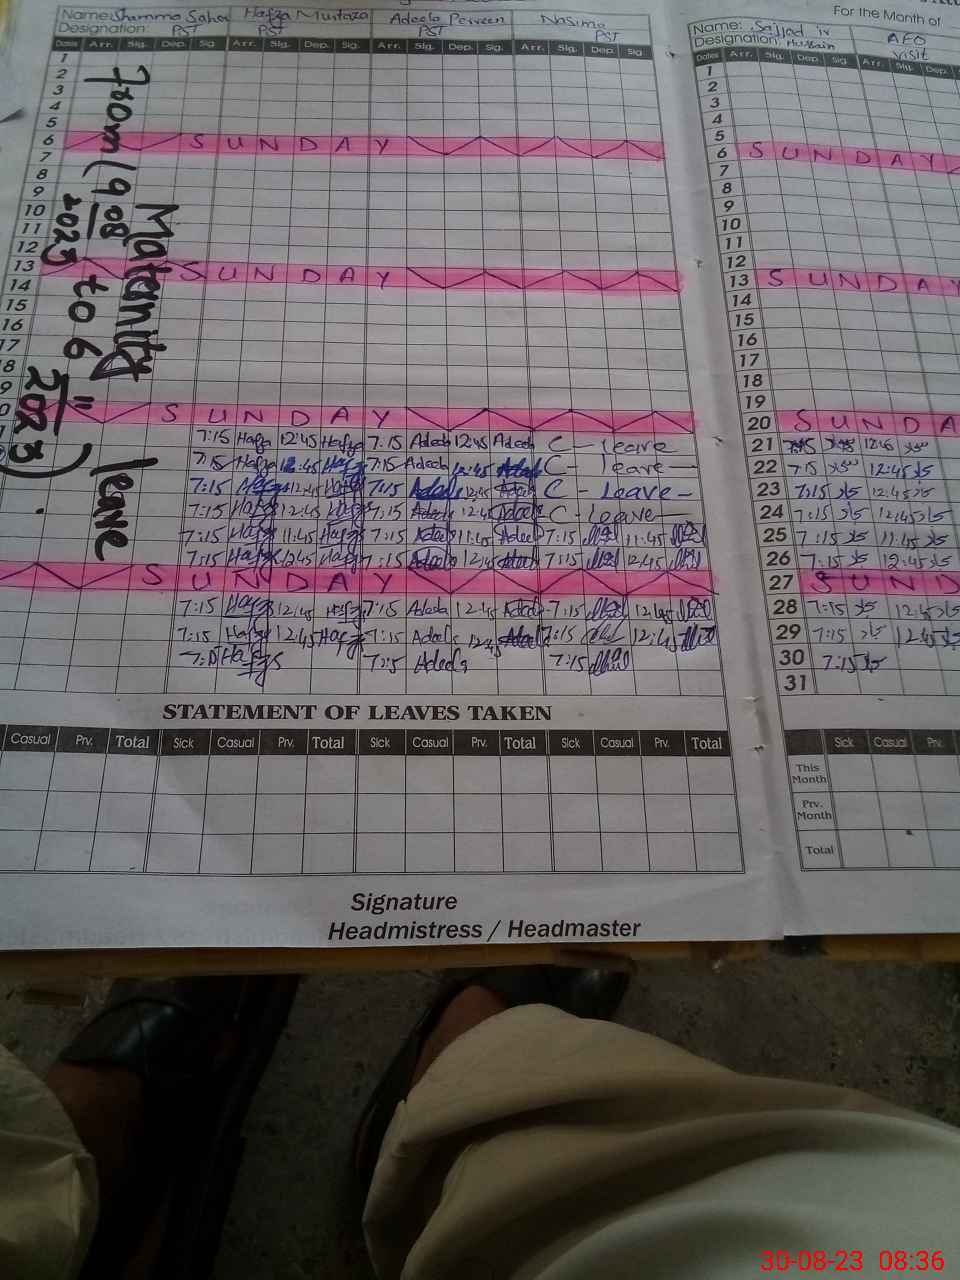 Name: Shamma Sahar Hafza Murtaza Adeela Perveen Nasima
Designation: PST PST PST PST
Dates Arr. Sig. Dep. Sig. Arr. Sig. Dep. Sig. Arr. Sig. Dep. Sig. Arr. Sig. Dep. Sig.
1
2
3
4
5
6 SUNDAY
7
8
9
10
11
12
13 SUNDAY
14
15
16
17
SUNDAY
7:15 Hafza 12:45 Hafza 7:15 Adeela 12:45 Adeela C - leave
7:15 Hafza 12:45 Hafza 7:15 Adeela 12:45 Adeela C - leave
7:15 Hafza 12:45 Hafza 7:15 Adeela 12:45 Adeela C - Leave
7:15 Hafza 12:45 Hafza 7:15 Adeela 12:45 Adeela C - leave
7:15 Hafza 11:45 Hafza 7:15 Adeela 11:45 Adeela 7:15 11:45
7:15 Hafza 12:45 Hafza 7:15 Adeela 12:45 Adeela 7:15 12:45
SUNDAY
7:15 Hafza 12:45 Hafza 7:15 Adeela 12:45 Adeela 7:15 12:45
7:15 Hafza 12:45 Hafza 7:15 Adeela 12:45 Adeela 7:15 12:45
7:15 Hafza 7:15 Adeela 7:15
Maternity leave
from (9.08 2023 to 6 11 2023)
STATEMENT OF LEAVES TAKEN
Casual Prv. Total Sick Casual Prv. Total Sick Casual Prv. Total Sick Casual Prv. Total
Signature
Headmistress / Headmaster
For the Month of
Name: Sajjad Hussain AFO
Designation: visit
Dates Arr. Sig. Dep. Sig. Arr. Sig. Dep.
1
2
3
4
5
6 SUNDAY
7
8
9
10
11
12
13 SUNDAY
14
15
16
17
18
19
20 SUNDA
21 7:15 12:45
22 7:15 12:45
23 7:15 12:45
24 7:15 12:45
25 7:15 11:45
26 7:15 12:45
27 SUND
28 7:15 12:45
29 7:15 12:45
30 7:15
31
Sick Casual Prv.
This Month
Prv. Month
Total
30-08-23 08:36